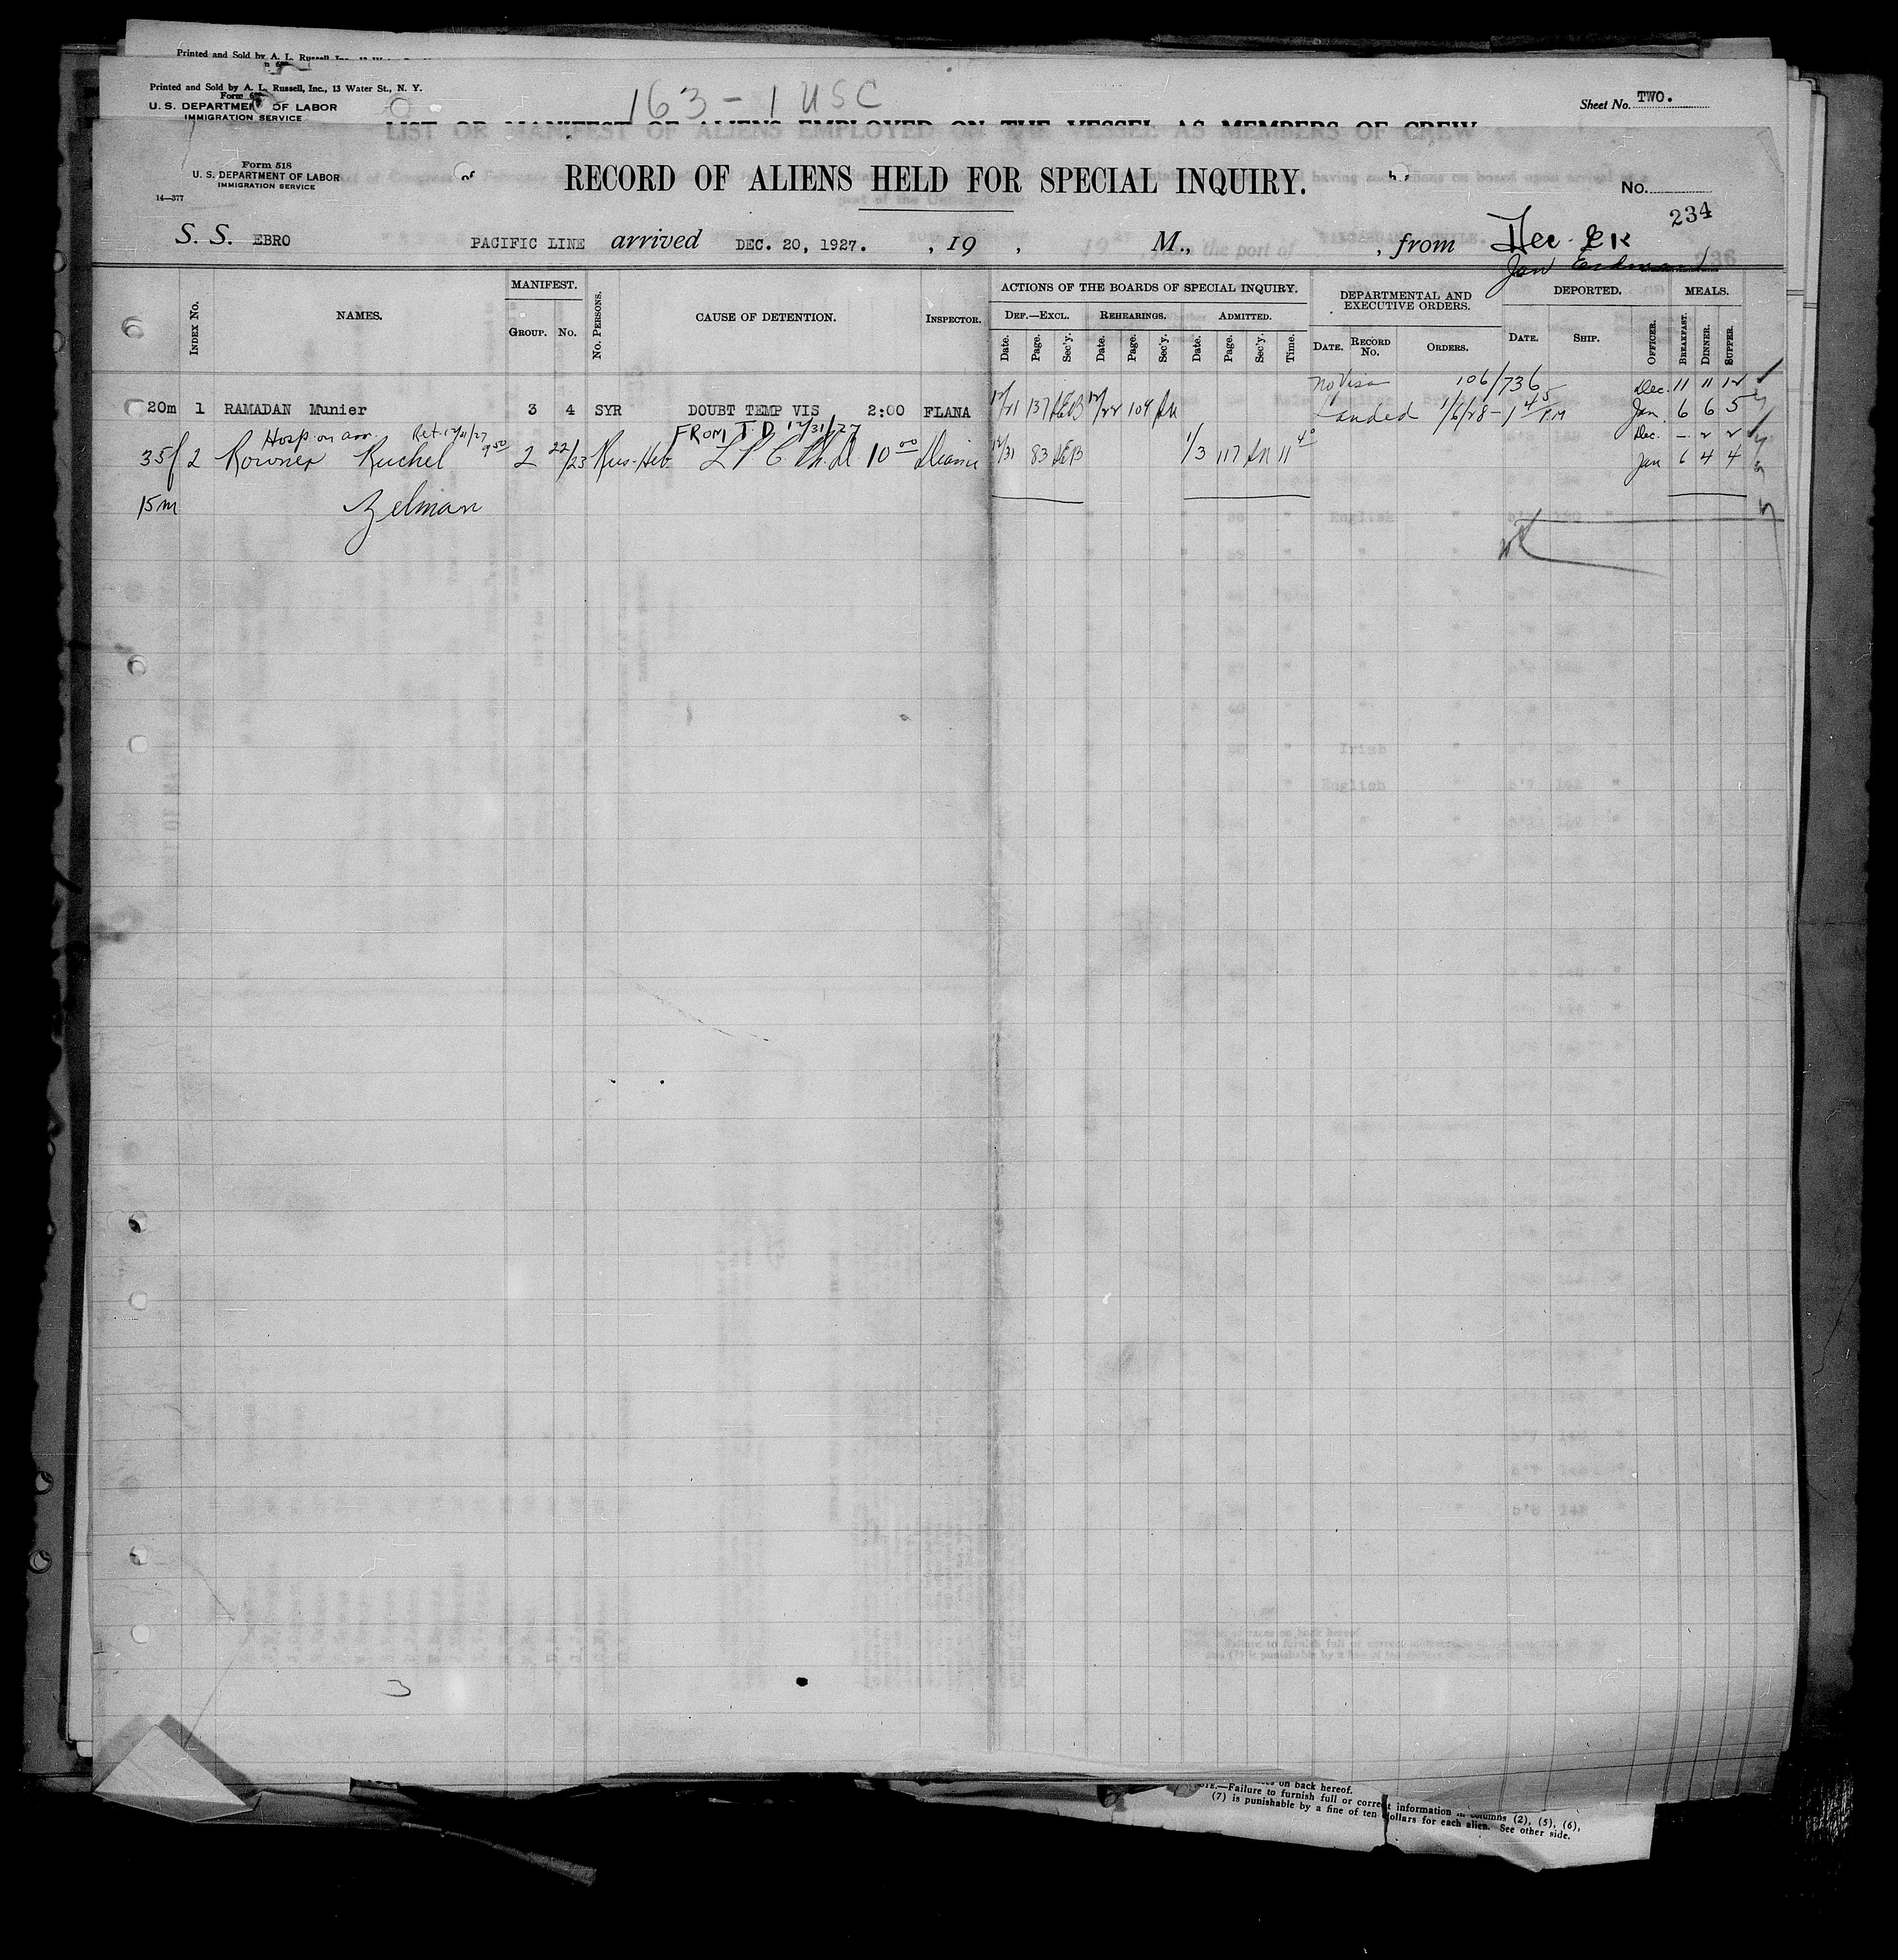 Printed and Sold by A. L. Russell, Inc.
Printed and Sold by A. L. Russell, Inc., 13 Water St., N. Y.
U. S. DEPARTMENT OF LABOR
IMMIGRATION SERVICE
163 - 1 USC
Sheet No. TWO.
LIST OR MANIFEST OF ALIENS EMPLOYED ON THE VESSEL AS MEMBERS OF CREW
Form 518
U. S. DEPARTMENT OF LABOR
IMMIGRATION SERVICE
14—377
RECORD OF ALIENS HELD FOR SPECIAL INQUIRY.
No.
234
S. S. EBRO PACIFIC LINE arrived DEC. 20, 1927. , 19 , M., , from Dec.
Jan Erdman
INDEX No. NAMES. MANIFEST. GROUP. No. No. PERSONS. CAUSE OF DETENTION. INSPECTOR. ACTIONS OF THE BOARDS OF SPECIAL INQUIRY. DEPARTMENTAL AND EXECUTIVE ORDERS. DEPORTED. MEALS.
DEF.—EXCL. REHEARINGS. ADMITTED.
Date. Page. Sec'y. Date. Page. Sec'y. Date. Page. Sec'y. Time. DATE. RECORD No. ORDERS. DATE. SHIP. OFFICER. BREAKFAST. DINNER. SUPPER.
No Visa 106/736 Dec. 11 11 12
20m 1 RAMADAN Munier 3 4 SYR DOUBT TEMP VIS 2:00 FLANA 12/21 137 12/22 109 Landed 1/6/28 - 1 45 PM Jan 6 6 5
Hosp on arr. Ret. 12/31/27 9 50 FROM T.D. 12/31/27 Dec. - 2 2
35f 2 Rowner Ruchel 2 22/23 Rus-Heb. L P C 10 00 12/31 83 1/3 117 11 40 Jan 6 4 4
15m Zelman
3
on back hereof.
NOTE.—Failure to furnish full or correct information in columns (2), (5), (6),
(7) is punishable by a fine of ten dollars for each alien. See other side.